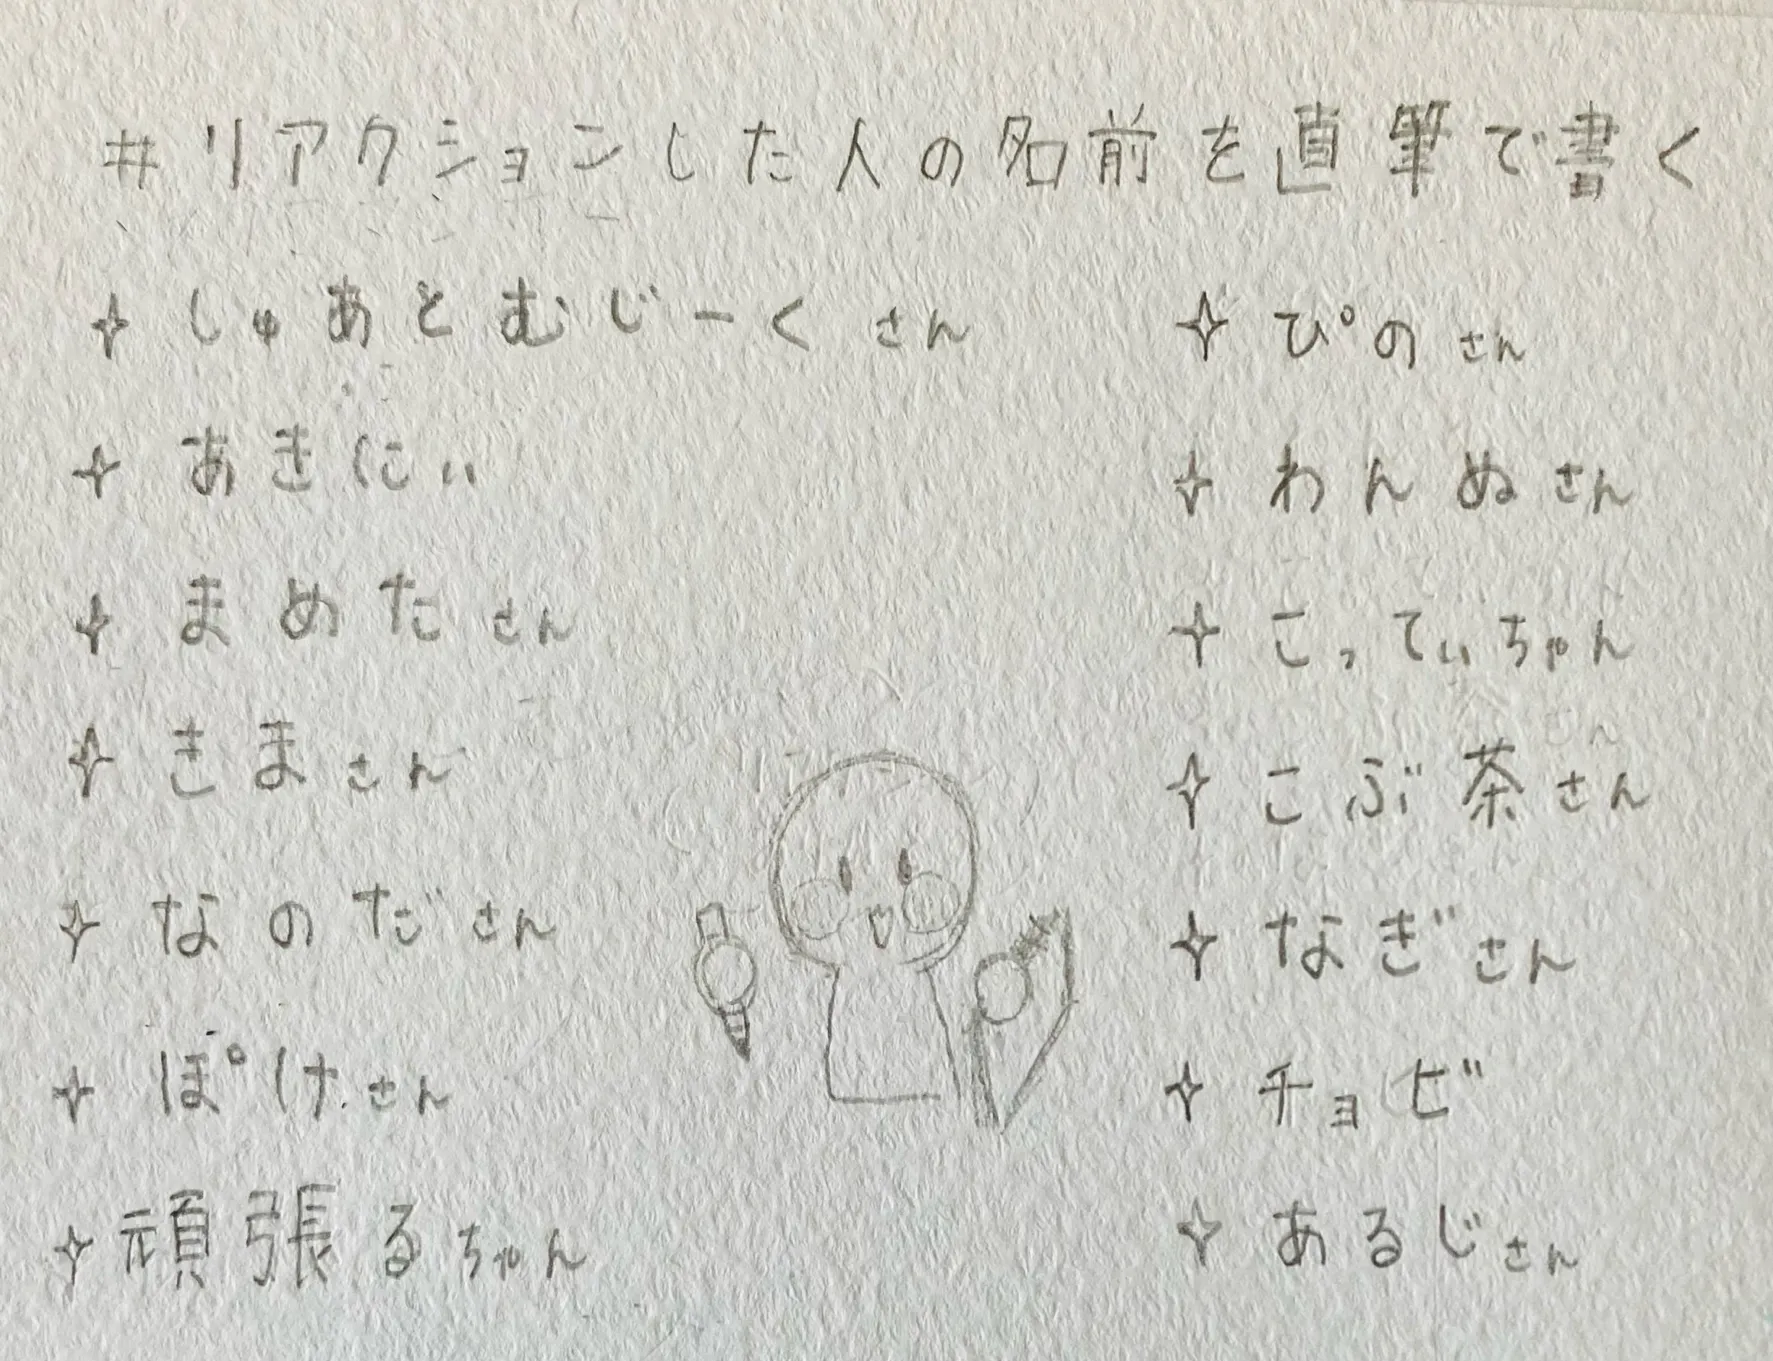 #リアクションした人の名前を直筆で書く
✧ しゅあとむじーくさん
✧ あきにぃ
✧ まめたさん
✧ きまさん
✧ なのださん
✧ ぽけさん
✧ 頑張るちゃん
✧ ぴのさん
✧ わんぬさん
✧ こってぃちゃん
✧ こぶ茶さん
✧ なぎさん
✧ チョビ
✧ あるじさん